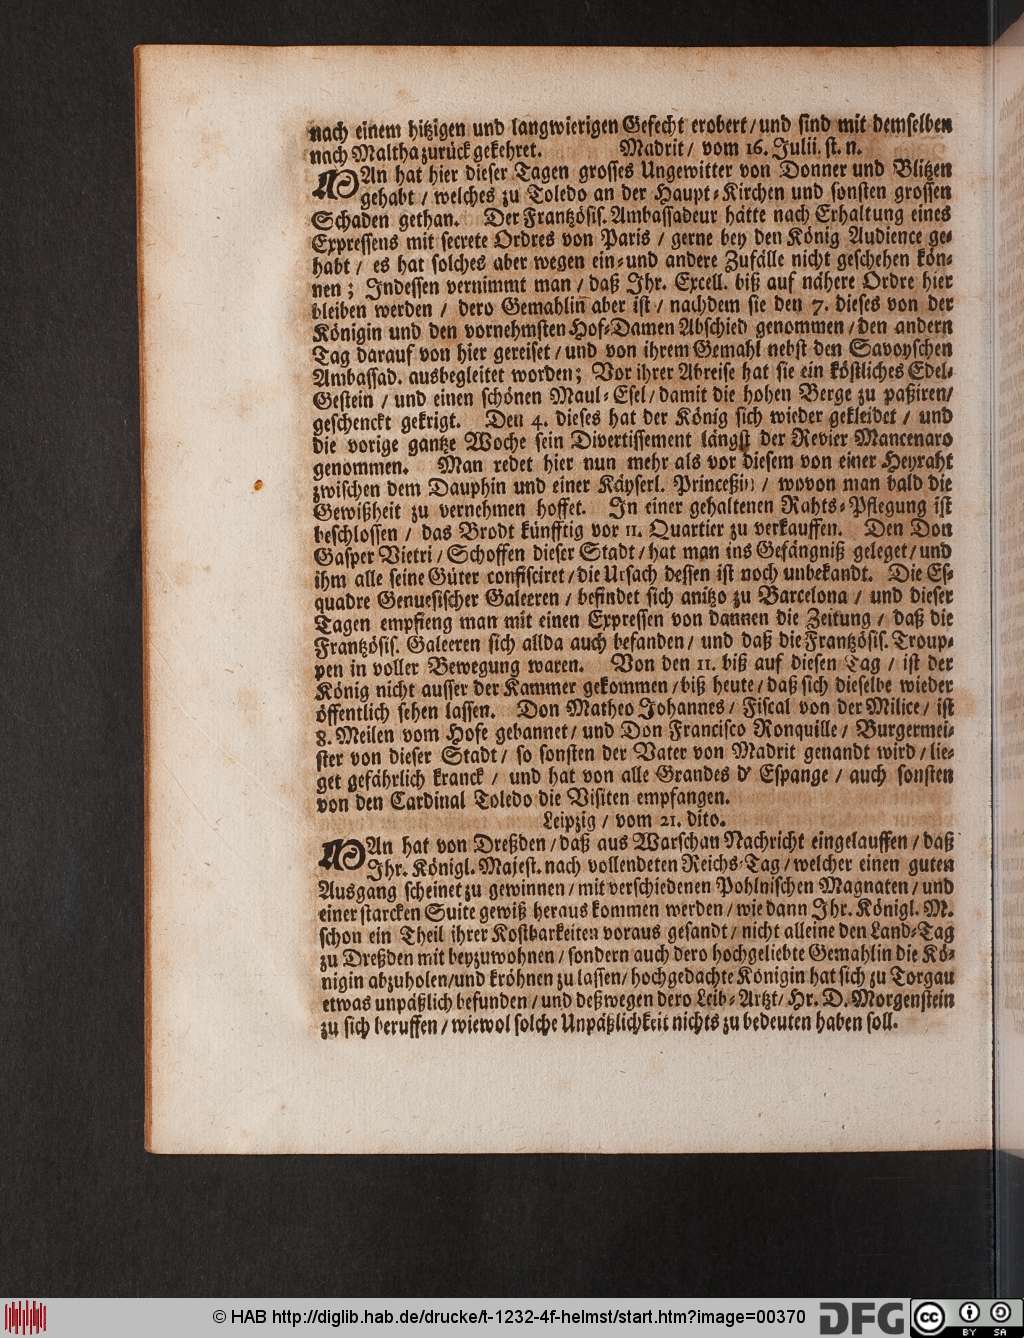 nach einem hitzigen und langwierigen Gefecht erobert / und sind mit demselben
nach Maltha zurück gekehret. Madrit / vom 16. Julii. st. n.
MAn hat hier dieser Tagen grosses Ungewitter von Donner und Blitzen
gehabt / welches zu Toledo an der Haupt-Kirchen und sonsten grossen
Schaden gethan. Der Frantzösis. Ambassadeur hätte nach Erhaltung eines
Expressens mit secrete Ordres von Paris / gerne bey den König Audience ge-
habt / es hat solches aber wegen ein- und andere Zufälle nicht geschehen kön-
nen ; Indessen vernimmt man / daß Ihr. Excell. biß auf nähere Ordre hier
bleiben werden / dero Gemahlin̄ aber ist / nachdem sie den 7. dieses von der
Königin und den vornehmsten Hof-Damen Abschied genommen / den andern
Tag darauf von hier gereiset / und von ihrem Gemahl nebst den Savoyschen
Ambassad. ausbegleitet worden; Vor ihrer Abreise hat sie ein köstliches Edel-
Gestein / und einen schönen Maul-Esel / damit die hohen Berge zu paßiren /
geschenckt gekrigt. Den 4. dieses hat der König sich wieder gekleidet / und
die vorige gantze Woche sein Divertissement längst der Revier Mancenaro
genommen. Man redet hier nun mehr als vor diesem von einer Heyraht
zwischen dem Dauphin und einer Käyserl. Princeßin / wovon man bald die
Gewißheit zu vernehmen hoffet. In einer gehaltenen Rahts-Pflegung ist
beschlossen / das Brodt künfftig vor 11. Quartier zu verkauffen. Den Don
Gasper Vietri / Schoffen dieser Stadt / hat man ins Gefängniß geleget / und
ihm alle seine Güter confisciret / die Ursach dessen ist noch unbekandt. Die Es-
quadre Genuesischer Galeeren / befindet sich anitzo zu Barcelona / und dieser
Tagen empfieng man mit einen Expressen von dannen die Zeitung / daß die
Frantzösis. Galeeren sich allda auch befanden / und daß die Frantzösis. Troup-
pen in voller Bewegung waren. Von den 11. biß auf diesen Tag / ist der
König nicht ausser der Kammer gekommen / biß heute / daß sich dieselbe wieder
öffentlich sehen lassen. Don Matheo Johannes / Fiscal von der Milice / ist
8. Meilen vom Hofe gebannet / und Don Francisco Ronquille / Burgermei-
ster von dieser Stadt / so sonsten der Vater von Madrit genandt wird / lie-
get gefährlich kranck / und hat von alle Grandes d' Espange / auch sonsten
von den Cardinal Toledo die Visiten empfangen.
Leipzig / vom 21. dito.
MAn hat von Dreßden / daß aus Warschau Nachricht eingelauffen / daß
Ihr. Königl. Majest. nach vollendeten Reichs-Tag / welcher einen guten
Ausgang scheinet zu gewinnen / mit verschiedenen Pohlnischen Magnaten / und
einer starcken Suite gewiß heraus kommen werden / wie dann Ihr. Königl. M.
schon ein Theil ihrer Kostbarkeiten voraus gesandt / nicht alleine den Land-Tag
zu Dreßden mit beyzuwohnen / sondern auch dero hochgeliebte Gemahlin die Kö-
nigin abzuholen / und kröhnen zu lassen / hochgedachte Königin hat sich zu Torgau
etwas unpäßlich befunden / und deßwegen dero Leib-Artzt / Hr. D. Morgenstein
zu sich beruffen / wiewol solche Unpäßlichkeit nichts zu bedeuten haben soll.
© HAB http://diglib.hab.de/drucke/t-1232-4f-helmst/start.htm?image=00370 DFG cc BY SA